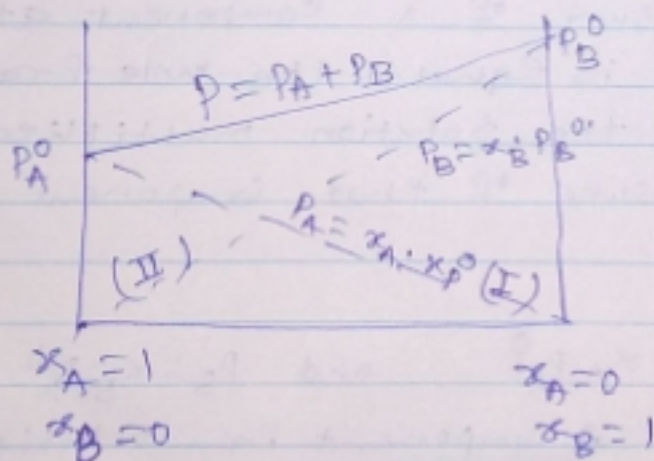 P_B^0
P = P_A + P_B
P_A^0
P_B = x_B · P_B^0
P_A = x_A · x_P^0 (I)
(II)
x_A = 1
x_A = 0
x_B = 0
x_B = 1